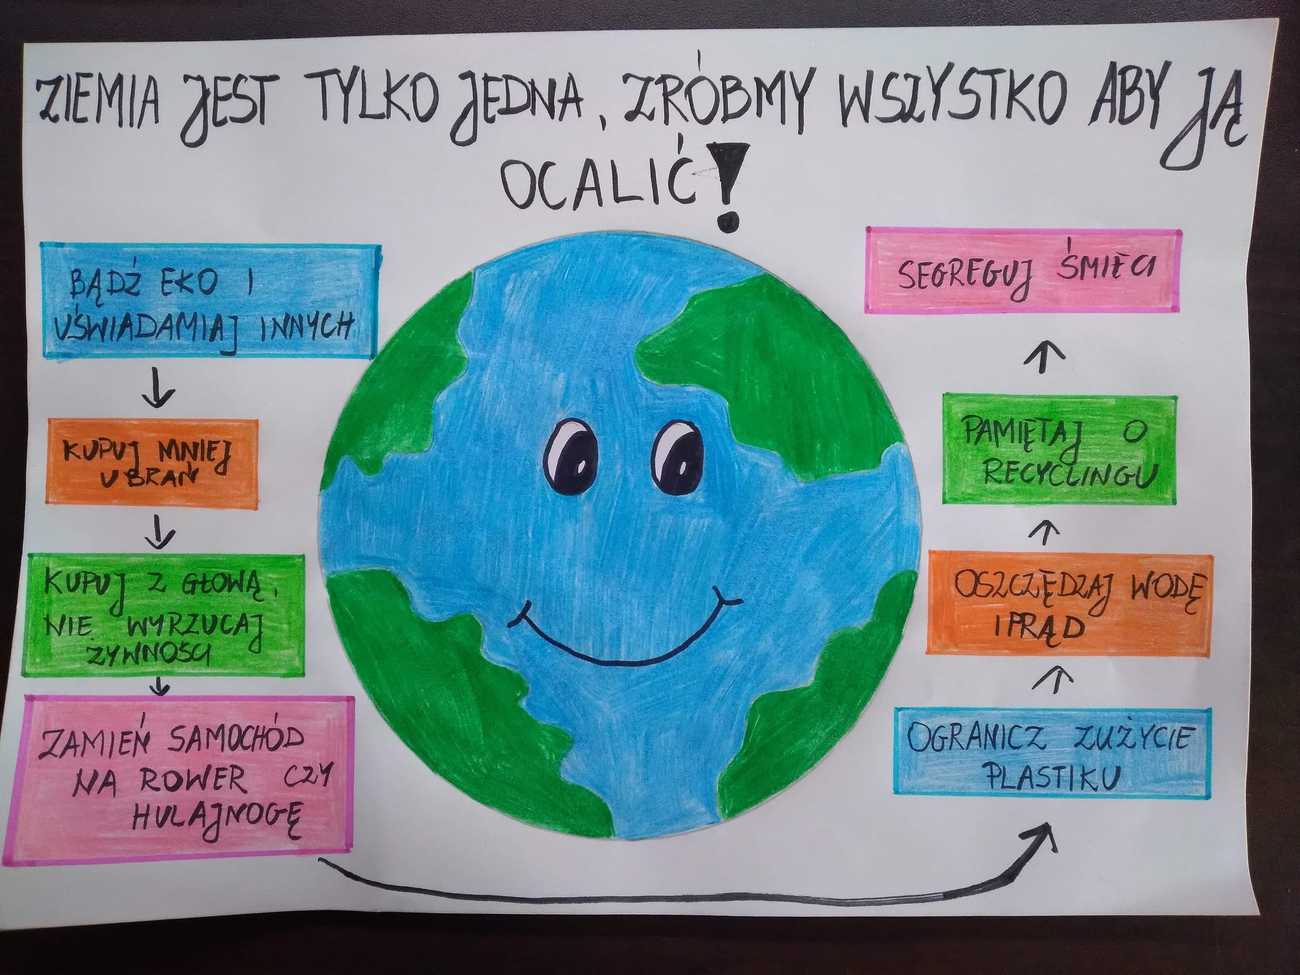 ZIEMIA JEST TYLKO JEDNA, ZRÓBMY WSZYSTKO ABY JĄ
OCALIĆ!
BĄDŹ EKO I
UŚWIADAMIAJ INNYCH
KUPUJ MNIEJ
UBRAŃ
KUPUJ Z GŁOWĄ,
NIE WYRZUCAJ
ŻYWNOŚCI
ZAMIEŃ SAMOCHÓD
NA ROWER CZY
HULAJNOGĘ
OGRANICZ ZUŻYCIE
PLASTIKU
OSZCZĘDZAJ WODĘ
I PRĄD
PAMIĘTAJ O
RECYCLINGU
SEGREGUJ ŚMIECI